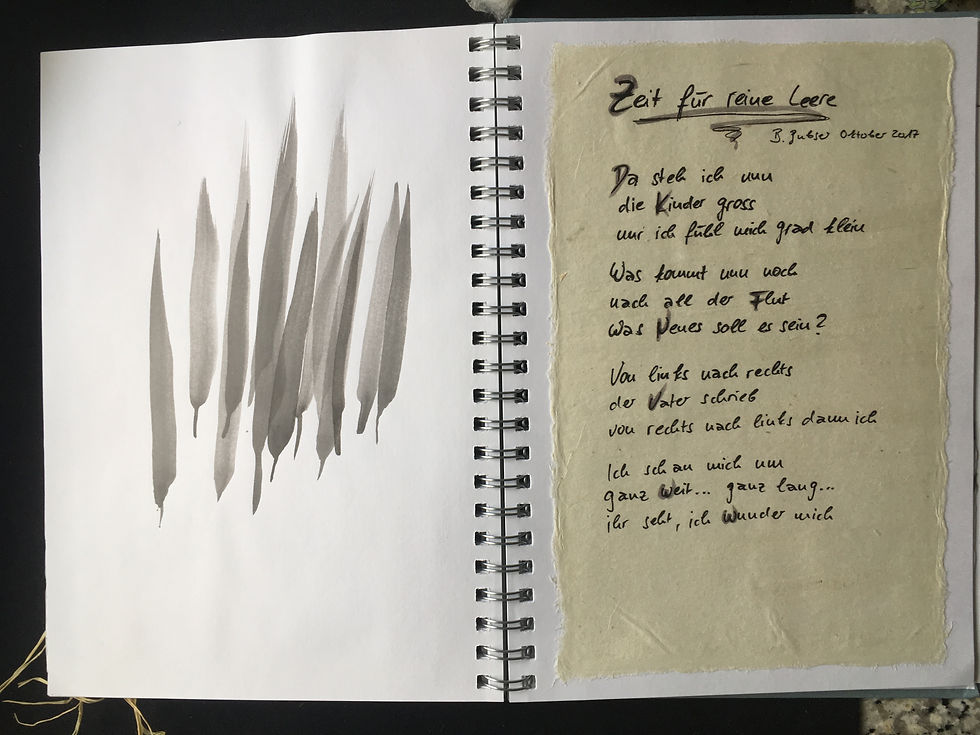 Zeit für reine Leere
B. Gubser Oktober 2017
Da steh ich nun
die Kinder gross
nur ich fühl mich grad klein
Was kommt nun noch
nach all der Flut
Was Neues soll es sein?
Von links nach rechts
der Vater schrieb
von rechts nach links dann ich
Ich schau mich um
ganz weit... ganz lang...
ihr seht, ich wunder mich